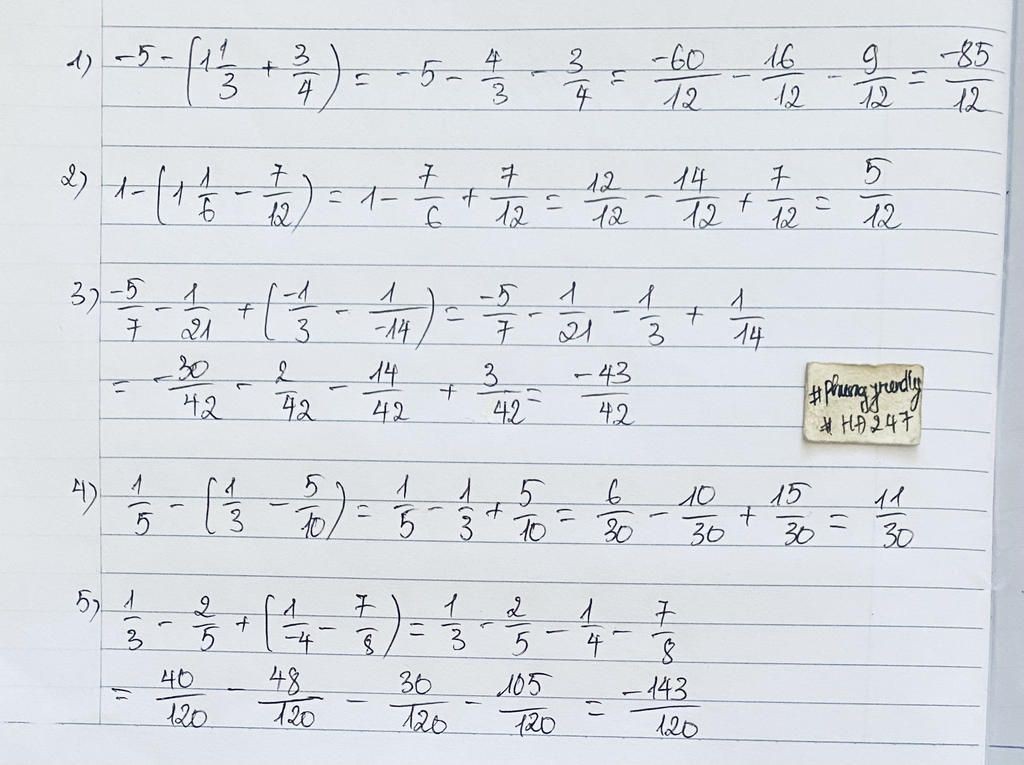 1) -5 - (1 1/3 + 3/4) = -5 - 4/3 - 3/4 = -60/12 - 16/12 - 9/12 = -85/12
2) 1 - (1 1/6 - 7/12) = 1 - 7/6 + 7/12 = 12/12 - 14/12 + 7/12 = 5/12
3) -5/7 - 1/21 + (-1/3 - 1/-14) = -5/7 - 1/21 - 1/3 + 1/14
= -30/42 - 2/42 - 14/42 + 3/42 = -43/42
#
# HA247
4) 1/5 - (1/3 - 5/10) = 1/5 - 1/3 + 5/10 = 6/30 - 10/30 + 15/30 = 11/30
5) 1/3 - 2/5 + (1/-4 - 7/8) = 1/3 - 2/5 - 1/4 - 7/8
= 40/120 - 48/120 - 30/120 - 105/120 = -143/120